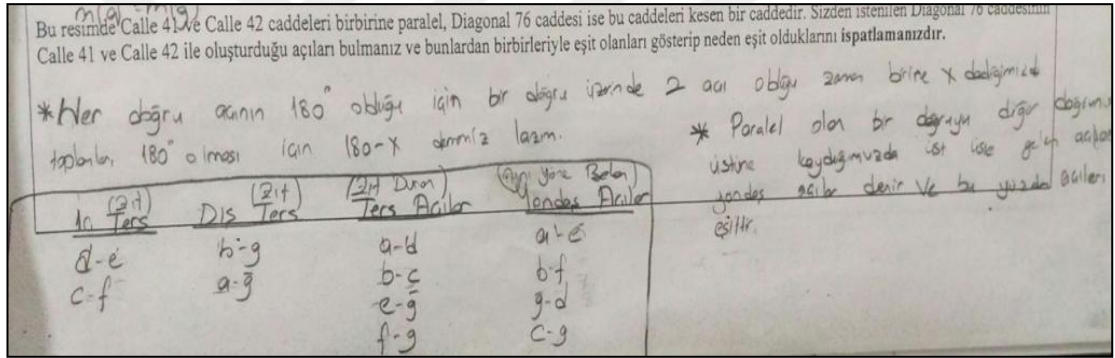 Bu resimde Calle 41 ve Calle 42 caddeleri birbirine paralel, Diagonal 76 caddesi ise bu caddeleri kesen bir caddedir. Sizden istenilen Diagonal 76 caddesinin
Calle 41 ve Calle 42 ile oluşturduğu açıları bulmanız ve bunlardan birbirleriyle eşit olanları gösterip neden eşit olduklarını ispatlamanızdır.
*Her doğru açının 180° olduğu için bir doğru üzerinde 2 açı olduğu zaman birine x dediğimizde
toplamları 180° olması için 180-x dememiz lazım.
* Paralel olan bir doğruyu diğer doğrunun
üstüne kaydığımızda üst üste gelen açılara
yöndeş açılar denir ve bu yüzden açıları
eşittir.
(Zıt) (Zıt) (Zıt Duran) (Aynı Yöne Bakan)
İç Ters Dış Ters Ters Açılar Yöndeş Açılar
d-e b-g a-d a-e
c-f a-ğ b-c b-f
e-ğ ğ-d
f-g c-g